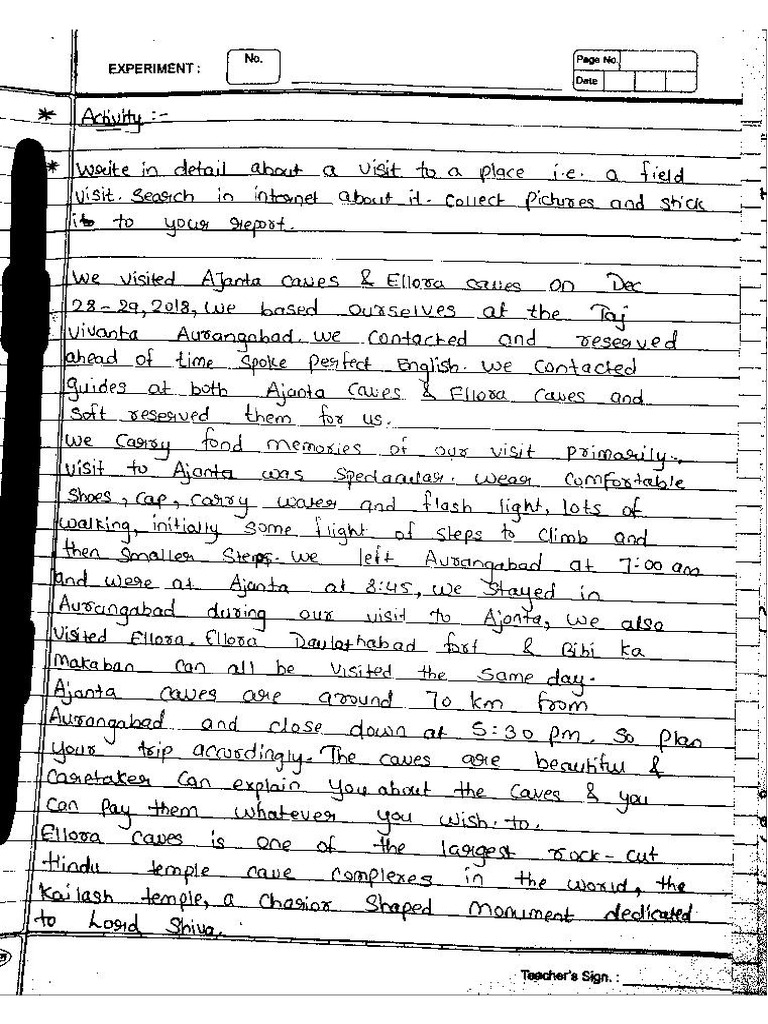 EXPERIMENT :
No.
Page No.
Date
* Activity :-
* Write in detail about a visit to a place i.e. a field
visit. Search in internet about it. Collect pictures and stick
it to your report.
We visited Ajanta caves & Ellora caves on Dec
28-29, 2018, we based ourselves at the Taj
Vivanta Aurangabad. we contacted and reserved
ahead of time spoke perfect English. we contacted
guides at both Ajanta caves & Ellora caves and
soft reserved them for us.
we carry fond memories of our visit primarily.,
visit to Ajanta was spectacular. wear comfortable
shoes, cap, carry water and flash light, lots of
walking, initially some flight of steps to climb and
then smaller steps. we left Aurangabad at 7:00 am
and were at Ajanta at 8:45, we stayed in
Aurangabad during our visit to Ajanta, we also
visited Ellora. Ellora Daulathabad fort & Bibi ka
Makaban can all be visited the same day.
Ajanta caves are around 70 km from
Aurangabad and close down at 5:30 pm. So plan
your trip accordingly. The caves are beautiful &
caretaker can explain you about the caves & you
can pay them whatever you wish. to.
Ellora caves is one of the largest rock-cut
Hindu temple cave complexes in the world, the
Kailash temple, a Charior Shaped Monument dedicated
to Lord Shiva.
Teacher's Sign. :